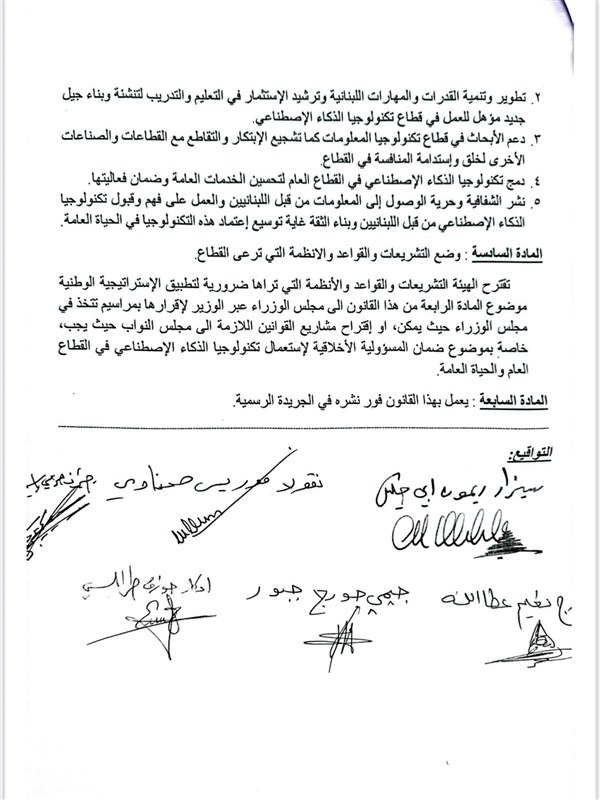 ٢. تطوير وتنمية القدرات والمهارات اللبنانية وترشيد الإستثمار في التعليم والتدريب لتنشئة وبناء جيل
جديد مؤهل للعمل في قطاع تكنولوجيا الذكاء الإصطناعي.
٣. دعم الأبحاث في قطاع تكنولوجيا المعلومات كما تشجيع الإبتكار والتقاطع مع القطاعات والصناعات
الأخرى لخلق وإستدامة المنافسة في القطاع.
٤. دمج تكنولوجيا الذكاء الإصطناعي في القطاع العام لتحسين الخدمات العامة وضمان فعاليتها.
٥. نشر الشفافية وحرية الوصول إلى المعلومات من قبل اللبنانيين والعمل على فهم وقبول تكنولوجيا
الذكاء الإصطناعي من قبل اللبنانيين وبناء الثقة غاية توسيع إعتماد هذه التكنولوجيا في الحياة العامة.
المادة السادسة : وضع التشريعات والقواعد والانظمة التي ترعى القطاع.
تقترح الهيئة التشريعات والقواعد والأنظمة التي تراها ضرورية لتطبيق الإستراتيجية الوطنية
موضوع المادة الرابعة من هذا القانون الى مجلس الوزراء عبر الوزير لإقرارها بمراسيم تتخذ في
مجلس الوزراء حيث يمكن، او إقتراح مشاريع القوانين اللازمة الى مجلس النواب حيث يجب،
خاصة بموضوع ضمان المسؤولية الأخلاقية لإستعمال تكنولوجيا الذكاء الإصطناعي في القطاع
العام والحياة العامة.
المادة السابعة : يعمل بهذا القانون فور نشره في الجريدة الرسمية.
التواقيع:
سيزار ريمون ابي خليل
نقولا موريس صحناوي
نعيم عطاالله
جيمي جورج جبور
ادكار جوزف طرابلسي